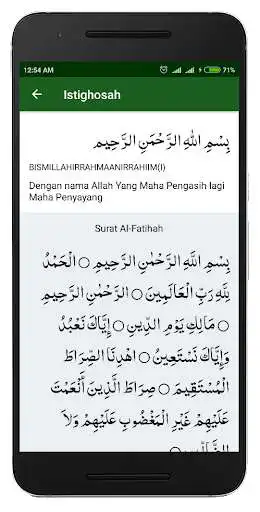 12:54 AM 71%
Istighosah
بِسْمِ اللهِ الرَّحْمَنِ الرَّحِيمِ
BISMILLAHIRRAHMAANIRRAHIIM(I)
Dengan nama Allah Yang Maha Pengasih lagi
Maha Penyayang
Surat Al-Fatihah
بِسْمِ اللَّهِ الرَّحْمَنِ الرَّحِيمِ ○ الْحَمْدُ
لِلَّهِ رَبِّ الْعَالَمِينَ ○ الرَّحْمَنِ الرَّحِيمِ
○ مَالِكِ يَوْمِ الدِّينِ ○ إِيَّاكَ نَعْبُدُ
وَإِيَّاكَ نَسْتَعِينُ ○ اهْدِنَا الصِّرَاطَ
الْمُسْتَقِيمَ ○ صِرَاطَ الَّذِينَ أَنْعَمْتَ
عَلَيْهِمْ غَيْرِ الْمَغْضُوبِ عَلَيْهِمْ وَلاَ